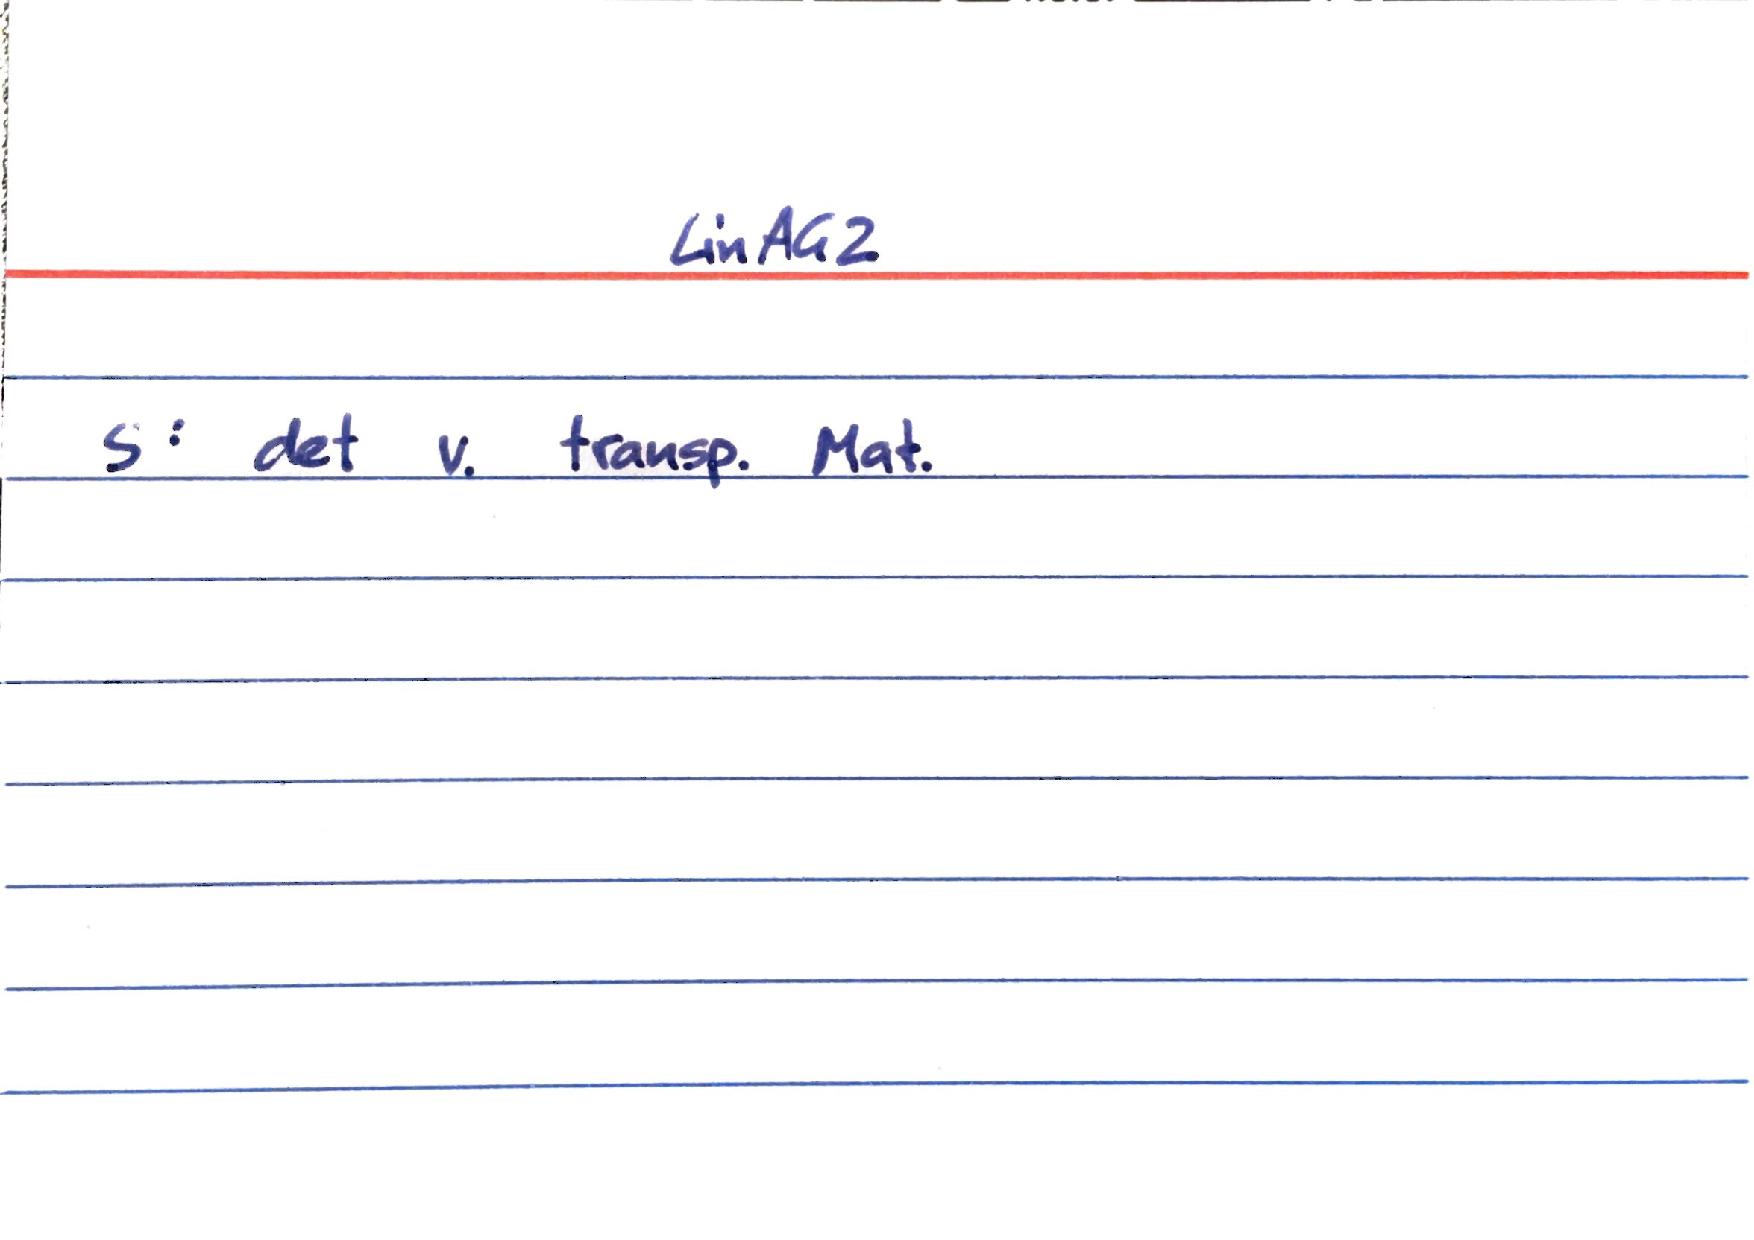 LinAG2
S: det v. transp. Mat.